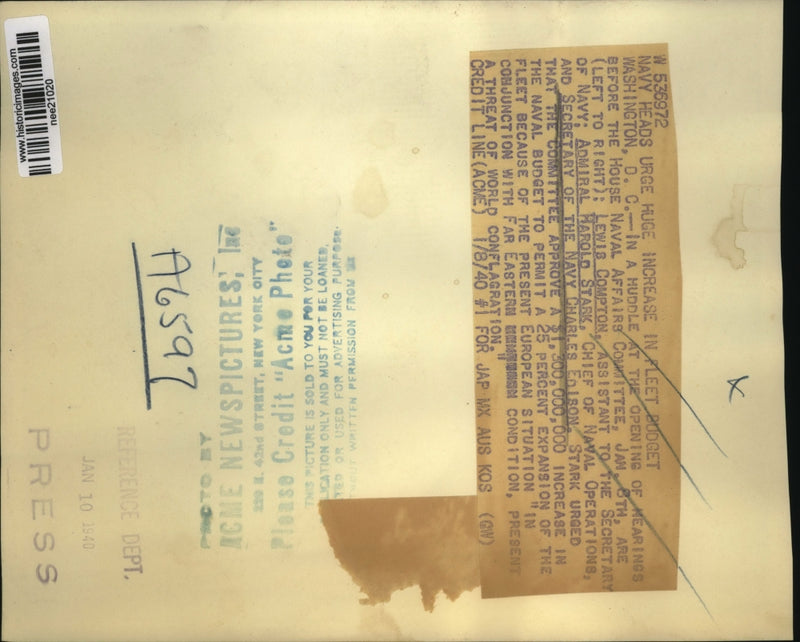 W 536972
NAVY HEADS URGE HUGE INCREASE IN FLEET BUDGET
WASHINGTON, D. C.--IN A HUDDLE AT THE OPENING OF HEARINGS
BEFORE THE HOUSE NAVAL AFFAIRS COMMITTEE, JAN. 8TH, ARE
(LEFT TO RIGHT): LEWIS COMPTON, ASSISTANT TO THE SECRETARY
OF NAVY; ADMIRAL HAROLD STARK, CHIEF OF NAVAL OPERATIONS;
AND SECRETARY OF THE NAVY CHARLES EDISON. STARK URGED
THAT THE COMMITTEE APPROVE A $1,300,000,000 INCREASE IN
THE NAVAL BUDGET TO PERMIT A 25 PERCENT EXPANSION OF THE
FLEET BECAUSE OF THE PRESENT EUROPEAN SITUATION "IN
CONJUNCTION WITH FAR EASTERN CONDITION, PRESENT
A THREAT OF WORLD CONFLAGRATION."
CREDIT LINE (ACME) 1/8/40 #1 FOR JAP MX AUS KOS (GW)
PHOTO BY
ACME NEWSPICTURES, Inc
220 E. 42nd STREET, NEW YORK CITY
Please Credit "Acme Photo"
THIS PICTURE IS SOLD TO YOU FOR YOUR
LICATION ONLY AND MUST NOT BE LOANED,
OR USED FOR ADVERTISING PURPOSE
WRITTEN PERMISSION FROM
A6597
REFERENCE DEPT.
JAN 10 1940
PRESS
X
www.historicimages.com
nee21020